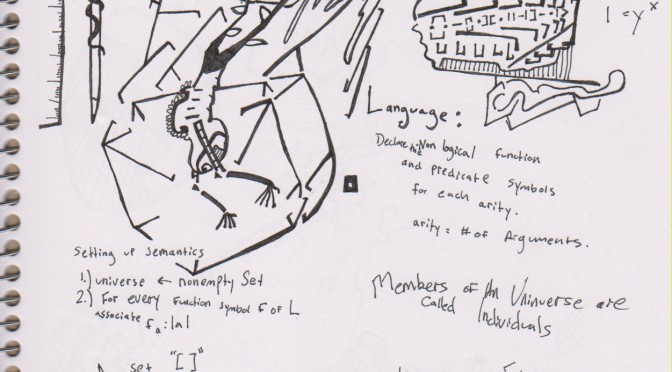 1 = y^x
Language:
Declare the Non logical function
and predicate symbols
for each arity.
arity = # of Arguments.
Setting up semantics
1.) universe ← nonempty Set
2.) For every function symbol f of L
associate f_a : |a|
Members of An Uninverse are
Called Individuals
set "[ ]"